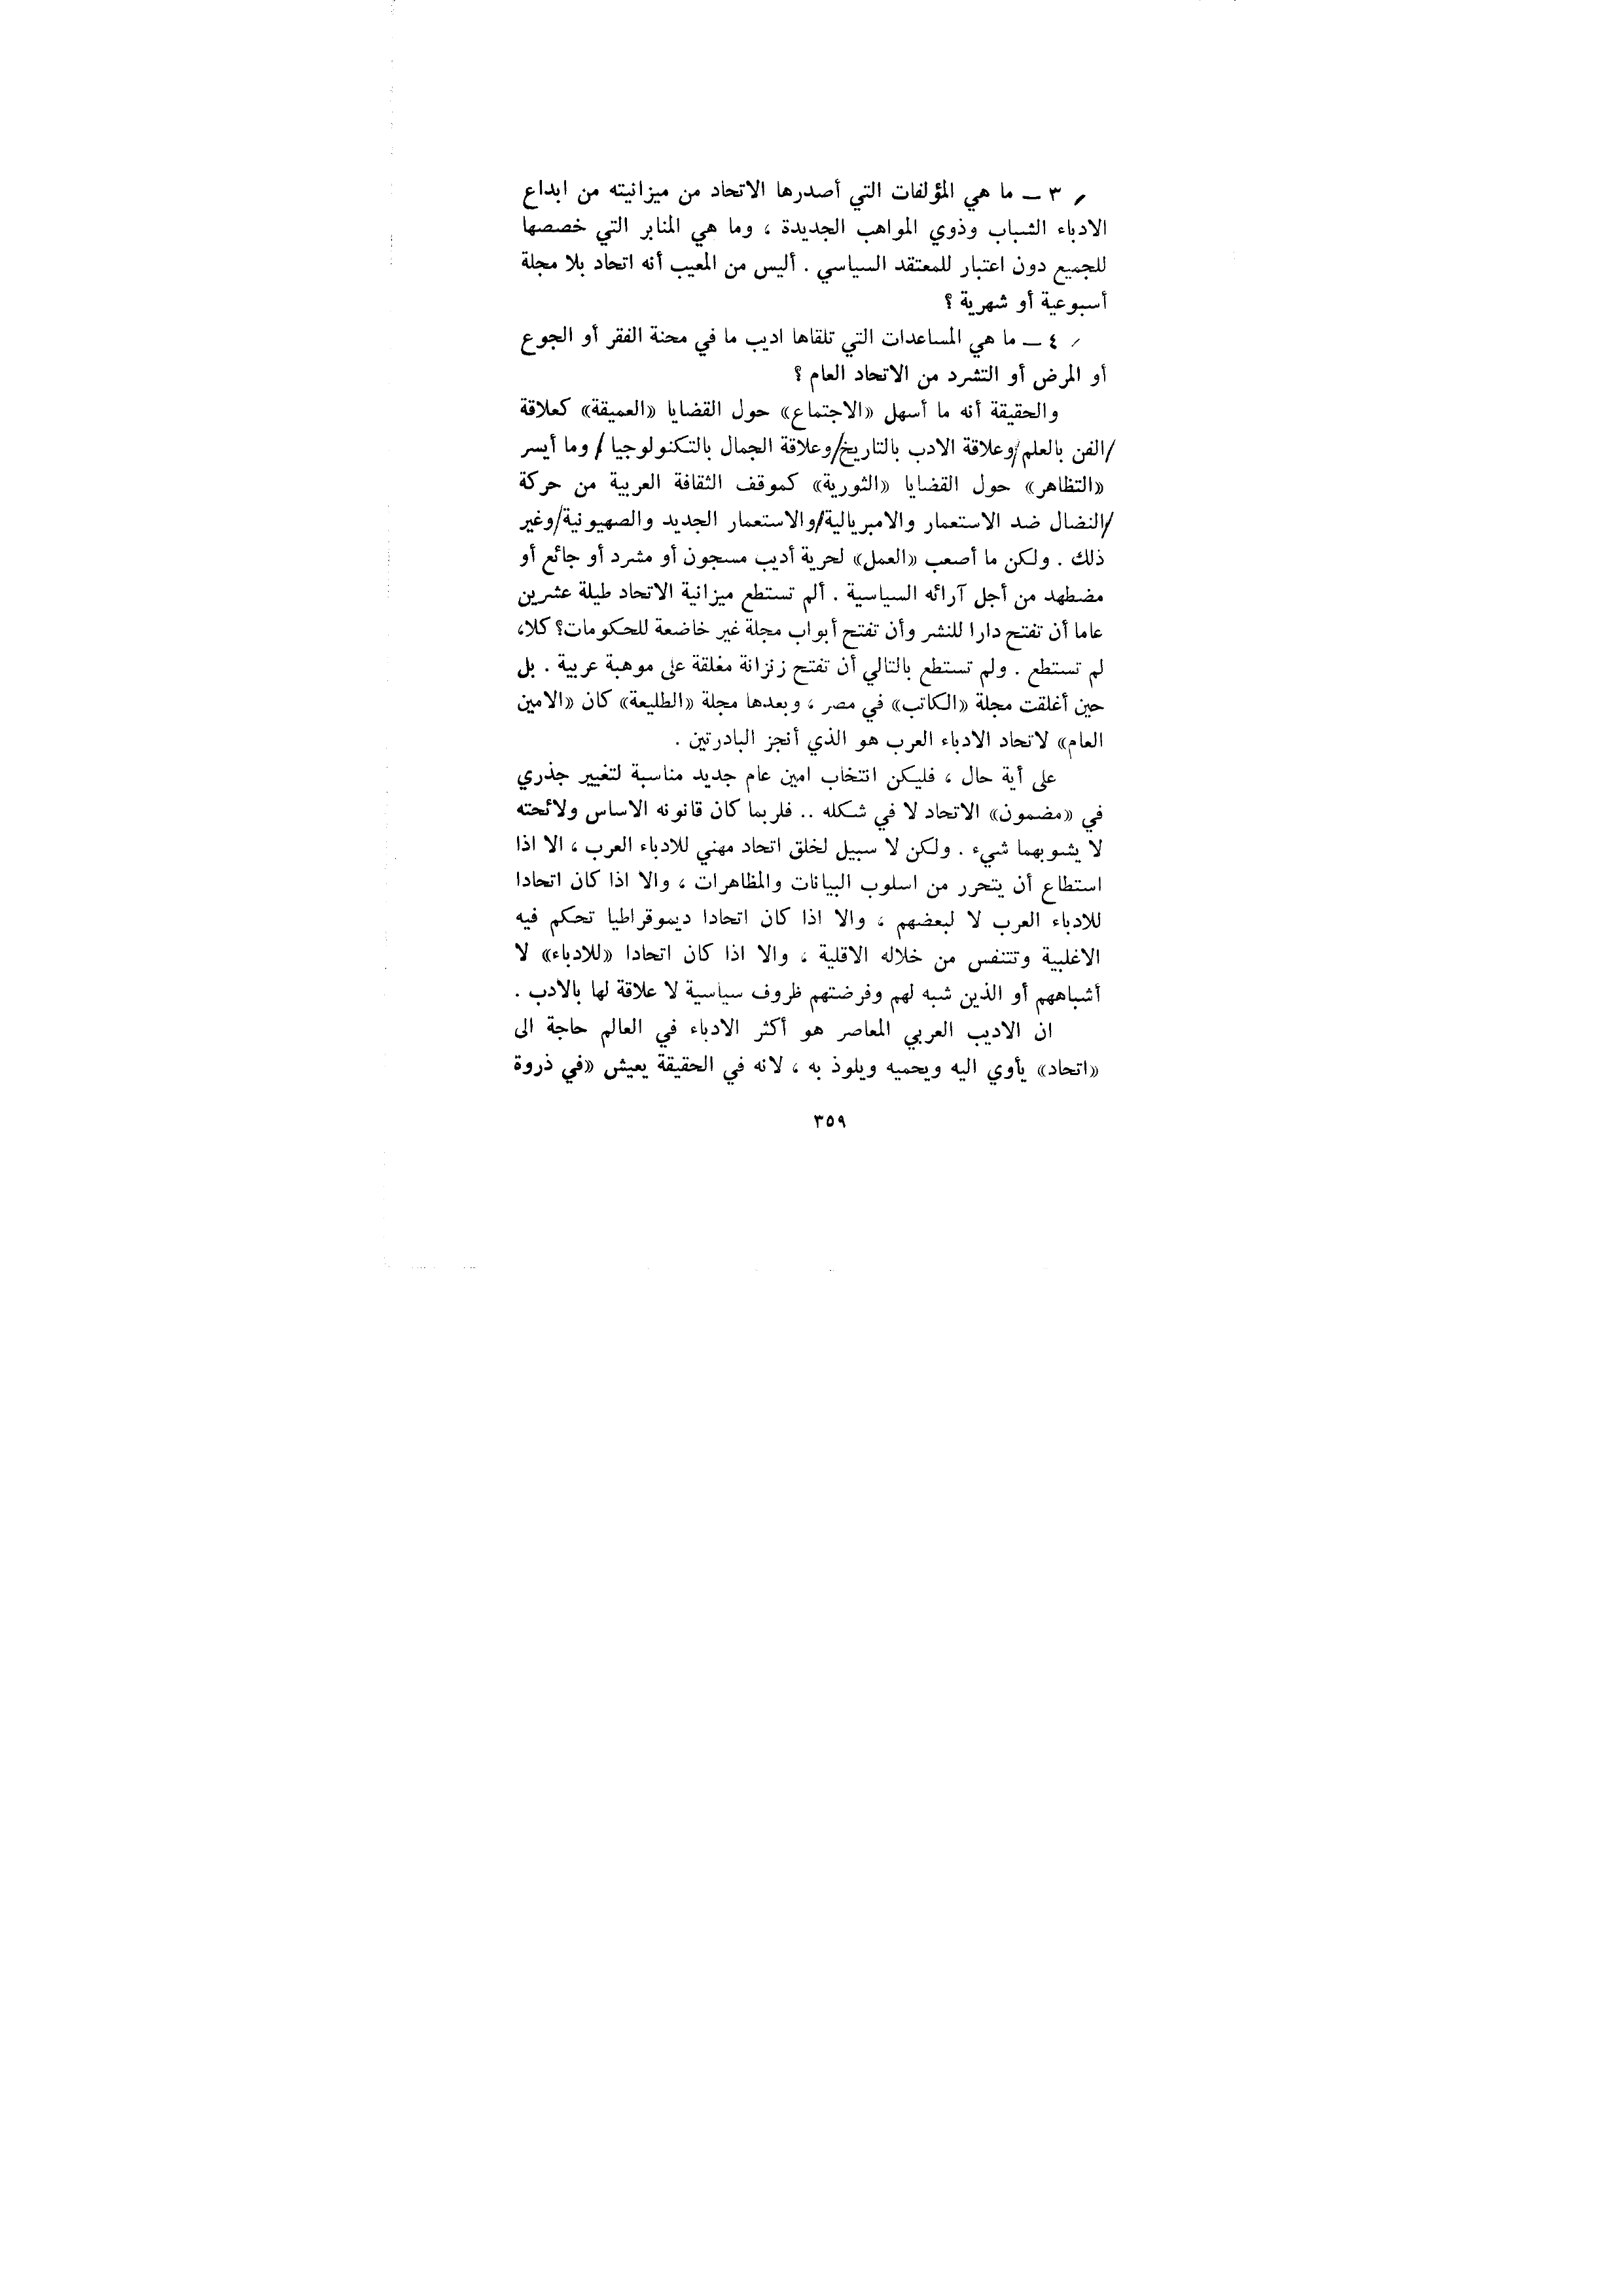 ٣ ــ ما هي المؤلفات التي أصدرها الاتحاد من ميزانيته من ابداع
الادباء الشباب وذوي المواهب الجديدة ، وما هي المنابر التي خصصها
للجميع دون اعتبار للمعتقد السياسي . أليس من المعيب أنه اتحاد بلا مجلة
أسبوعية أو شهرية ؟
٤ ــ ما هي المساعدات التي تلقاها اديب ما في محنة الفقر أو الجوع
أو المرض أو التشرد من الاتحاد العام ؟
والحقيقة أنه ما أسهل «الاجتماع» حول القضايا «العميقة» كعلاقة
/الفن بالعلم/وعلاقة الادب بالتاريخ/وعلاقة الجمال بالتكنولوجيا/ وما أيسر
«التظاهر» حول القضايا «الثورية» كموقف الثقافة العربية من حركة
/النضال ضد الاستعمار والامبريالية/والاستعمار الجديد والصهيونية/وغير
ذلك . ولكن ما أصعب «العمل» لحرية أديب مسجون أو مشرد أو جائع أو
مضطهد من أجل آرائه السياسية . ألم تستطع ميزانية الاتحاد طيلة عشرين
عاما أن تفتح دارا للنشر وأن تفتح أبواب مجلة غير خاضعة للحكومات؟ كلا،
لم تستطع . ولم تستطع بالتالي أن تفتح زنزانة مغلقة على موهبة عربية . بل
حين أغلقت مجلة «الكاتب» في مصر ، وبعدها مجلة «الطليعة» كان «الامين
العام» لاتحاد الادباء العرب هو الذي أنجز البادرتين .
على أية حال ، فليكن انتخاب امين عام جديد مناسبة لتغيير جذري
في «مضمون» الاتحاد لا في شكله .. فلربما كان قانونه الاساس ولائحته
لا يشوبهما شيء . ولكن لا سبيل لخلق اتحاد مهني للادباء العرب ، الا اذا
استطاع أن يتحرر من اسلوب البيانات والمظاهرات ، والا اذا كان اتحادا
للادباء العرب لا لبعضهم ، والا اذا كان اتحادا ديموقراطيا تحكم فيه
الاغلبية وتتنفس من خلاله الاقلية ، والا اذا كان اتحادا «للادباء» لا
أشباههم أو الذين شبه لهم وفرضتهم ظروف سياسية لا علاقة لها بالادب .
ان الاديب العربي المعاصر هو أكثر الادباء في العالم حاجة الى
«اتحاد» يأوي اليه ويحميه ويلوذ به ، لانه في الحقيقة يعيش «في ذروة
٣٥٩